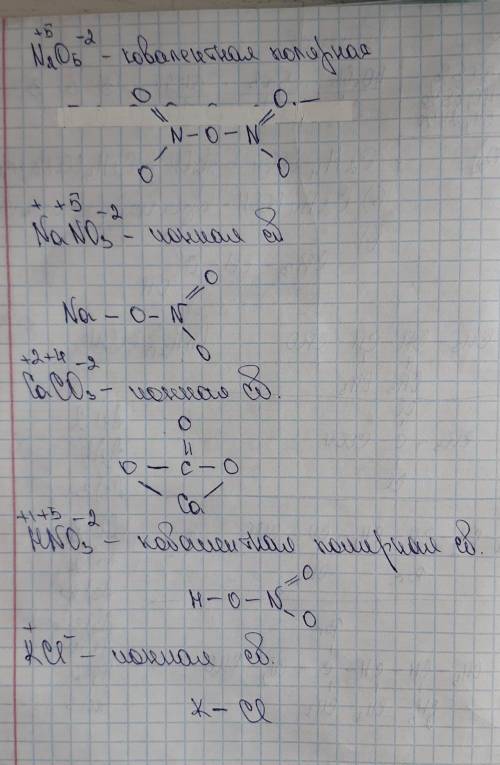 +5 -2
N2O5 - ковалентная полярная
O O
N - O - N
O O
+ +5 -2
NaNO3 - ионная св
O
Na - O - N
O
+2+4 -2
CaCO3 - ионная св.
O
O - C - O
Ca
+1+5 -2
HNO3 - ковалентная полярная св.
O
H - O - N
O
+ -
KCl - ионная св.
K - Cl